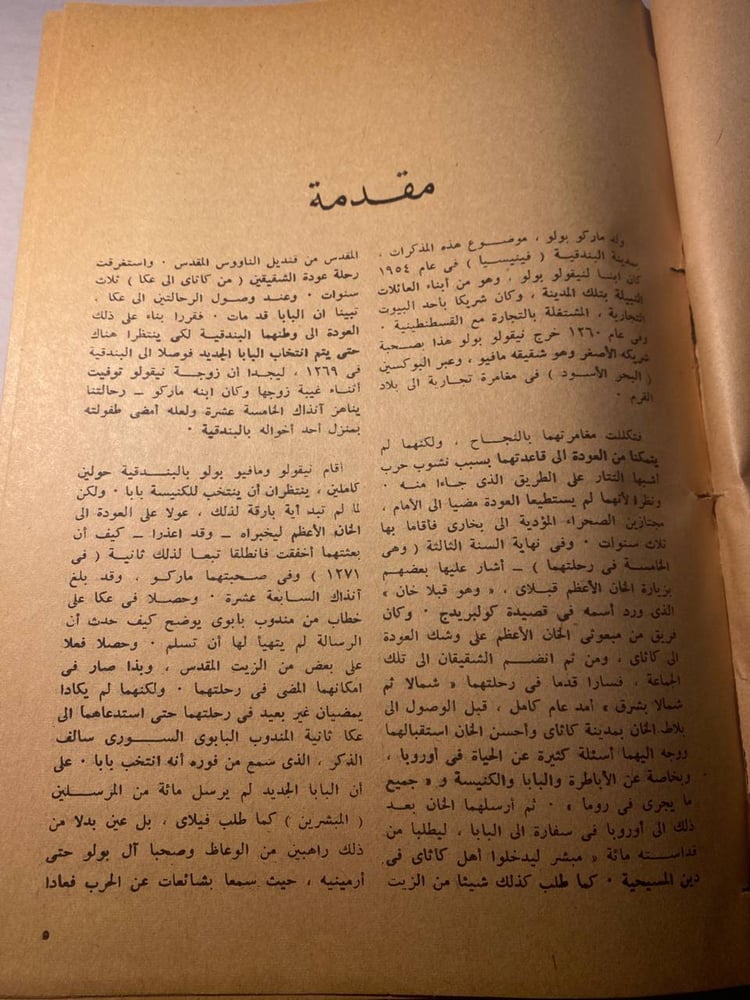 مقـدمة
ولد ماركو بولو ، موضـوع هذه المذكرات ،
بمدينة البندقية ( فينيسيا ) فى عام ١٩٥٤
كان ابنـا لنيقولو بولو ، وهو من أبناء العائلات
النبيلة بتلك المدينة ، وكان شريكا بأحد البيوت
التجارية ، المشتغلة بالتجارة مع القسطنطينية ٠
وفى عام ١٢٦٠ خرج نيقولو بولو هذا بصـحبة
شريكه الأصغر وهو شقيقه مافيو ، وعبر البوكسين
( البحر الأسـود ) فى مغامرة تجارية الى بلاد
القرم ٠
فتكللت مغامرتهما بالنجـاح ، ولكنهما لم
يتمكنا من العودة الى قاعدتهما بسبب نشوب حرب
أشبها التتار على الطريق الذى جاءا منـه ٠
ونظرا لأنهما لم يستطيعا العودة مضيا الى الأمام ،
مجتازين الصحراء المؤدية الى بخارى فأقاما بها
ثلاث سنوات ٠ وفى نهاية السنة الثالثة ( وهى
الخامسة فى رحلتهما ) ــ أشار عليها بعضهم
بزيارة الخان الأعظم قبلاى ، « وهو قبلا خان »
الذى ورد أسمه فى قصيدة كولبريدج ٠ وكان
فريق من مبعوثى الخان الأعظم على وشك العودة
الى كاثاى ، ومن ثم انضـم الشقيقان الى تلك
الجماعة ، فسارا قدما فى رحلتهما « شمالا ثم
شمالا بشرق » أمد عام كامل ، قبل الوصول الى
بلاط الخان بمدينة كاثاى وأحسن الخان استقبالهما
ووجه اليهما أسئلة كثيرة عن الحياة فى أوروبا ،
وبخاصة عن الأباطرة والبابا والكنيسة و « جميع
ما يجرى فى روما » ٠ ثم أرسلهما الخان بعد
ذلك الى أوروبا فى سفارة الى البابا ، ليطلبا من
قداسـته مائة « مبشر ليدخلوا أهل كاثاى فى
دين المسيحية ٠ كما طلب كذلك شيئا من الزيت
المقدس من قنديل الناووس المقدس ٠ واستغرقت
رحلة عودة الشقيقين ( من كاثاى الى عكا ) ثلاث
سنوات ٠ وعنـد وصـول الرحالتين الى عكا ،
تبينا ان البابا قد مات ٠ فقررا بناء على ذلك
العودة الى وطنهما البندقيـة لكى ينتظرا هناك
حتى يتم انتخاب البابا الجديد فوصلا الى البندقية
فى ١٢٦٩ ، ليجدا ان زوجـة نيقولو توفيت
أثنـاء غيبة زوجها وكان ابنه ماركو ــ رحالتنا
يناهز آنذاك الخامسة عشرة ولعله أمضى طفولته
بمنزل أحد أخواله بالبندقية ٠
أقام نيقولو ومافيو بولو بالبنـدقية حولين
كاملين ، ينتظران أن ينتخب للكنيسة بابا ٠ ولكن
لما لم تبد أية بارقة لذلك ، عولا على العودة الى
الخان الأعظم ليخبراه ــ وقد اعذرا ــ كيف أن
بعثتهما أخفقت فانطلقا تبعـا لذلك ثانيـة ( فى
١٢٧١ ) وفى صـحبتهما ماركـو ، وقد بلغ
آنذاك السـابعة عشرة ٠ وحصـلا فى عكا على
خطاب من مندوب بابوى يوضح كيف حدث أن
الرسالة لم يتهيأ لها أن تسلم ٠ وحصلا فعلا
على بعض من الزيت المقدس ، وبذا صار فى
امكانهما المضى فى رحلتهما ٠ ولكنهما لم يكادا
يمضيان غير بعيد فى رحلتهما حتى استدعاهمـا الى
عكا ثانية المندوب البابوى السـورى سالف
الذكر ، الذى سمع من فوره أنه انتخب بابا ٠ على
أن البابا الجديد لم يرسل مائة من المرسـلين
( المبشرين ) كما طلب فيلاى ، بل عين بدلا من
ذلك راهبين من الوعاظ وصحبا آل بولو حتى
أرمينيه ، حيث سمعا بشائعات عن الحرب فعادا
٩